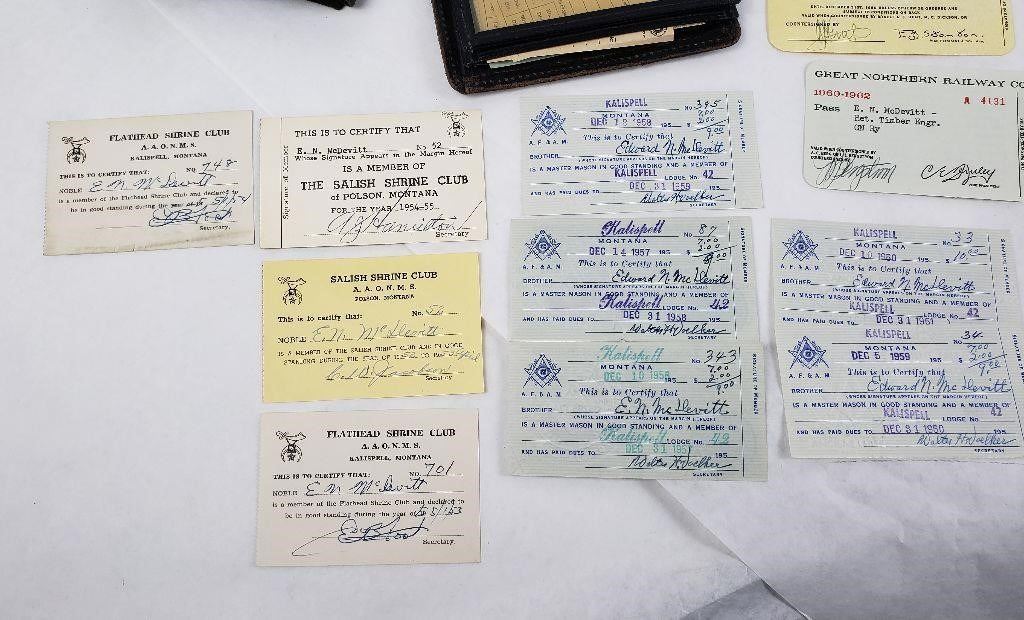 FLATHEAD SHRINE CLUB
A. A. O. N. M. S.
KALISPELL, MONTANA
THIS IS TO CERTIFY THAT: NO 748
NOBLE E N McDevitt
is a member of the Flathead Shrine Club and declared to
be in good standing during the year of
Secretary.
THIS IS TO CERTIFY THAT
E. N. McDevitt No 52
Whose Signature Appears in the Margin Hereof
IS A MEMBER OF
THE SALISH SHRINE CLUB
of POLSON, MONTANA
FOR THE YEAR 1954-55
Secretary
SALISH SHRINE CLUB
A. A. O. N. M. S.
POLSON, MONTANA
This is to certify that: No.
NOBLE E. N. McDevitt
IS A MEMBER OF THE SALISH SHRINE CLUB AND IN GOOD
STANDING DURING THE YEAR OF
Secretary
FLATHEAD SHRINE CLUB
A. A. O. N. M. S.
KALISPELL, MONTANA
THIS IS TO CERTIFY THAT: NO 701
NOBLE E N McDevitt
is a member of the Flathead Shrine Club and declared to
be in good standing during the year of
Secretary.
KALISPELL No 395
DEC 12 1958 195 $ 7.00
2.00
9.00
This is to Certify that
A. F. & A. M.
BROTHER Edward N. McDevitt
(WHOSE SIGNATURE APPEARS ON THE MARGIN HEREOF)
IS A MASTER MASON IN GOOD STANDING AND A MEMBER OF
KALISPELL LODGE No. 42
AND HAS PAID DUES TO DEC 31 1959 195
Walter H. Voelker
SECRETARY
Kalispell No 87
MONTANA 7.00
DEC 14 1957 195 $ 2.00
9.00
This is to Certify that
A. F. & A. M.
BROTHER Edward N McDevitt
(WHOSE SIGNATURE APPEARS ON THE MARGIN HEREOF)
IS A MASTER MASON IN GOOD STANDING AND A MEMBER OF
Kalispell LODGE No. 42
AND HAS PAID DUES TO DEC 31 1958 195
Walter H. Voelker
SECRETARY
Kalispell No 343
MONTANA 7.00
DEC 10 1956 195 $ 2.00
9.00
This is to Certify that
A. F. & A. M.
BROTHER E. N. McDevitt
(WHOSE SIGNATURE APPEARS ON THE MARGIN HEREOF)
IS A MASTER MASON IN GOOD STANDING AND A MEMBER OF
Kalispell LODGE No. 42
AND HAS PAID DUES TO DEC 31 195
Walter H. Voelker
SECRETARY
COUNTERSIGNED BY
GREAT NORTHERN RAILWAY CO
1960-1962 A 4131
Pass E. N. McDevitt -
Ret. Timber Engr.
GN Ry
KALISPELL No 33
MONTANA
DEC 10 1960 195 $ 10.00
This is to Certify that
A. F. & A. M.
BROTHER Edward N. McDevitt
(WHOSE SIGNATURE APPEARS ON THE MARGIN HEREOF)
IS A MASTER MASON IN GOOD STANDING AND A MEMBER OF
KALISPELL LODGE No. 42
AND HAS PAID DUES TO DEC 31 1961 195
KALISPELL No 34
MONTANA 7.00
DEC 5 1959 195 $ 2.00
9.00
This is to Certify that
A. F. & A. M.
BROTHER Edward N. McDevitt
(WHOSE SIGNATURE APPEARS ON THE MARGIN HEREOF)
IS A MASTER MASON IN GOOD STANDING AND A MEMBER OF
KALISPELL LODGE No. 42
AND HAS PAID DUES TO DEC 31 1960 195
Walter H Voelker
SECRETARY